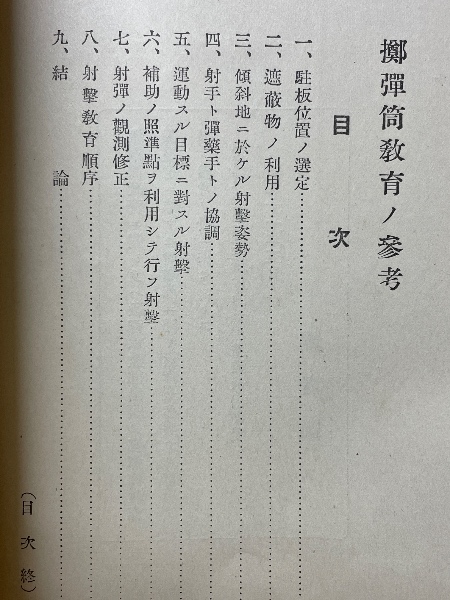 擲彈筒教育ノ參考
目次
一、駐板位置ノ選定
二、遮蔽物ノ利用
三、傾斜地ニ於ケル射擊姿勢
四、射手ト彈藥手トノ協調
五、運動スル目標ニ對スル射擊
六、補助ノ照準點ヲ利用シテ行フ射擊
七、射彈ノ觀測修正
八、射擊敎育順序
九、結論
(目次終)